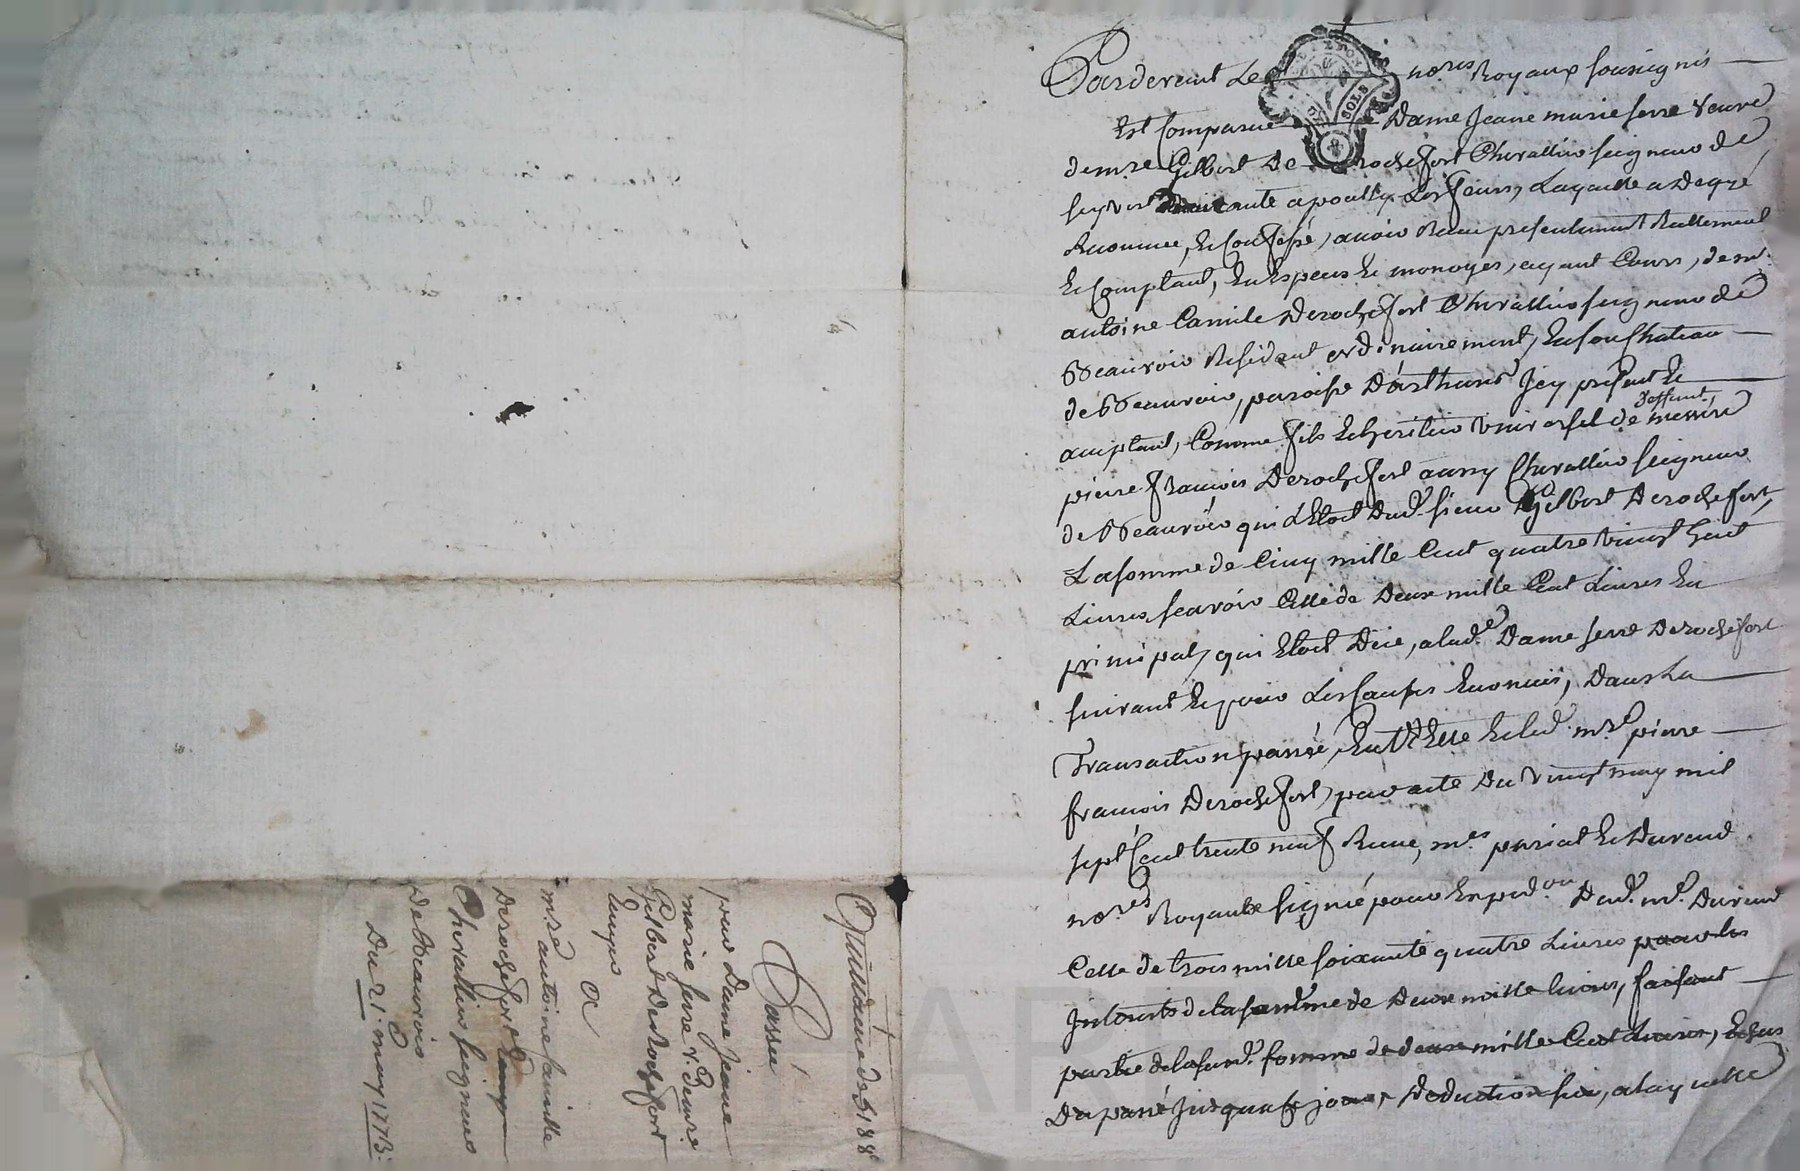 Pardevant Les no.res Royaux soussignés
Est Comparue Dame Jeane marie serre veuve
de m.re Gilbert De rochefort Chevallier seigneur de
a poully Les feurs, Laquelle a De gré
Reconnue, & Confessé, avoir Receu presentement Reellement
& Comptant, En Especes & monoyes, ayant Cours, de m.r
antoine Camile Derochefort Chevallier seigneur de
Beauvoir Residant ordinairement, En son Chateau
de Beauvoir, paroisse D'arthund Icy present &
acceptant, Comme fils & heritier universel de deffunt messire
pierre francois Derochefort aussy Chevallier seigneur
de Beauvoir qui L'Etoit Dud. sieur Gilbert Derochefort,
La somme de Cinq mille Cent quatre vingt huit
Livres, scavoir Celle de Deux mille Cent Livres En
principal, qui Etoit Düe, a lad.e Dame serre Derochefort
suivant & pour Les Causes Enoncées, Dans La
Transaction passée, Entre Elle & led. m.re pierre
francois Derochefort, par acte Du vingt may mil
sept Cent trente neuf Receu, m.es pariat & Durand
no.res Royaux signé pour Exped.on Dud. m.e Durand
Celle de trois mille soixante quatre Livres pour les
Interets de la somme de Deux mille livres, faisant
partie de la susd. somme de deux mille Cent Livres, Echus
Du passé Jusqua ce jour, Deduction faite, a laquelle
Quittance de 5188
Passée
par Dame Jeane
marie serre v.e De m.re
Gilbert De Rochefort
a
m.re antoine Camille
Derochefort
Chevallier seigneur
de Beauvoir
Du 21. may 1773.